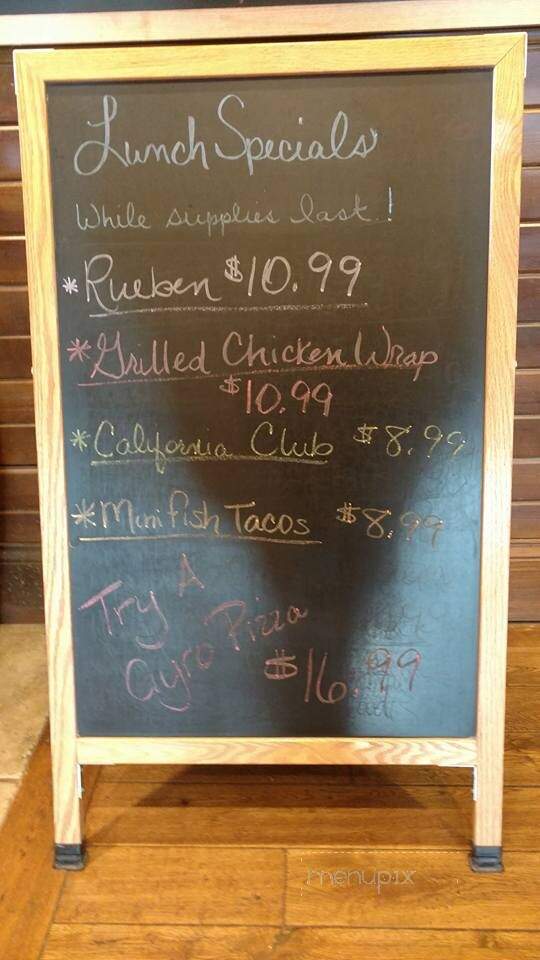 Lunch Specials
While supplies last!
*Rueben $10.99
*Grilled Chicken Wrap
$10.99
*California Club $8.99
*Mini fish Tacos $8.99
Try A
Gyro Pizza
$16.99
menupix